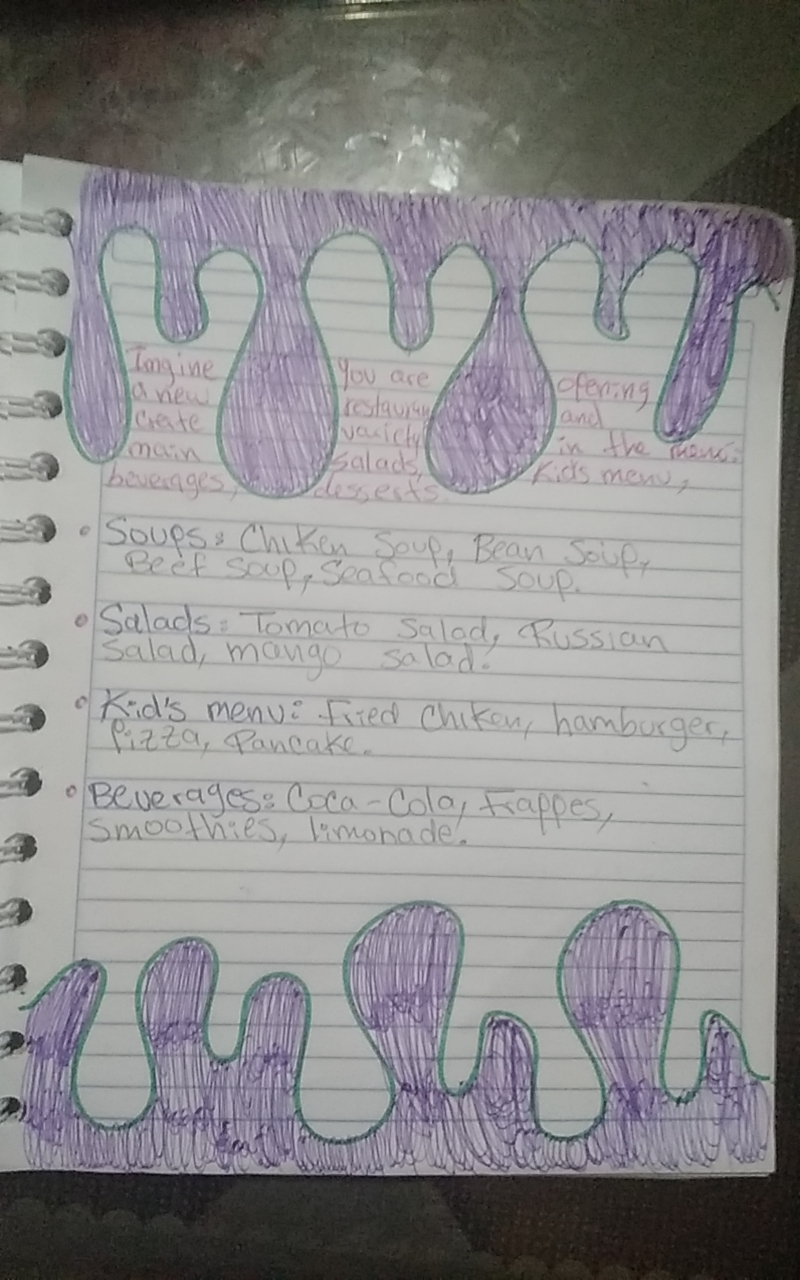 Imgine you are ofering
a new restauran and
create variety in the menu:
main salads, Kids menu,
beverages, desserts
Soups: Chiken Soup, Bean Soup,
Beef Soup, Seafood Soup.
Salads: Tomato Salad, Russian
Salad, mango salad.
Kid's menu: Fried Chiken, hamburger,
Pizza, Pancake.
Beverages: Coca-Cola, Frappes,
smoothies, limonade.